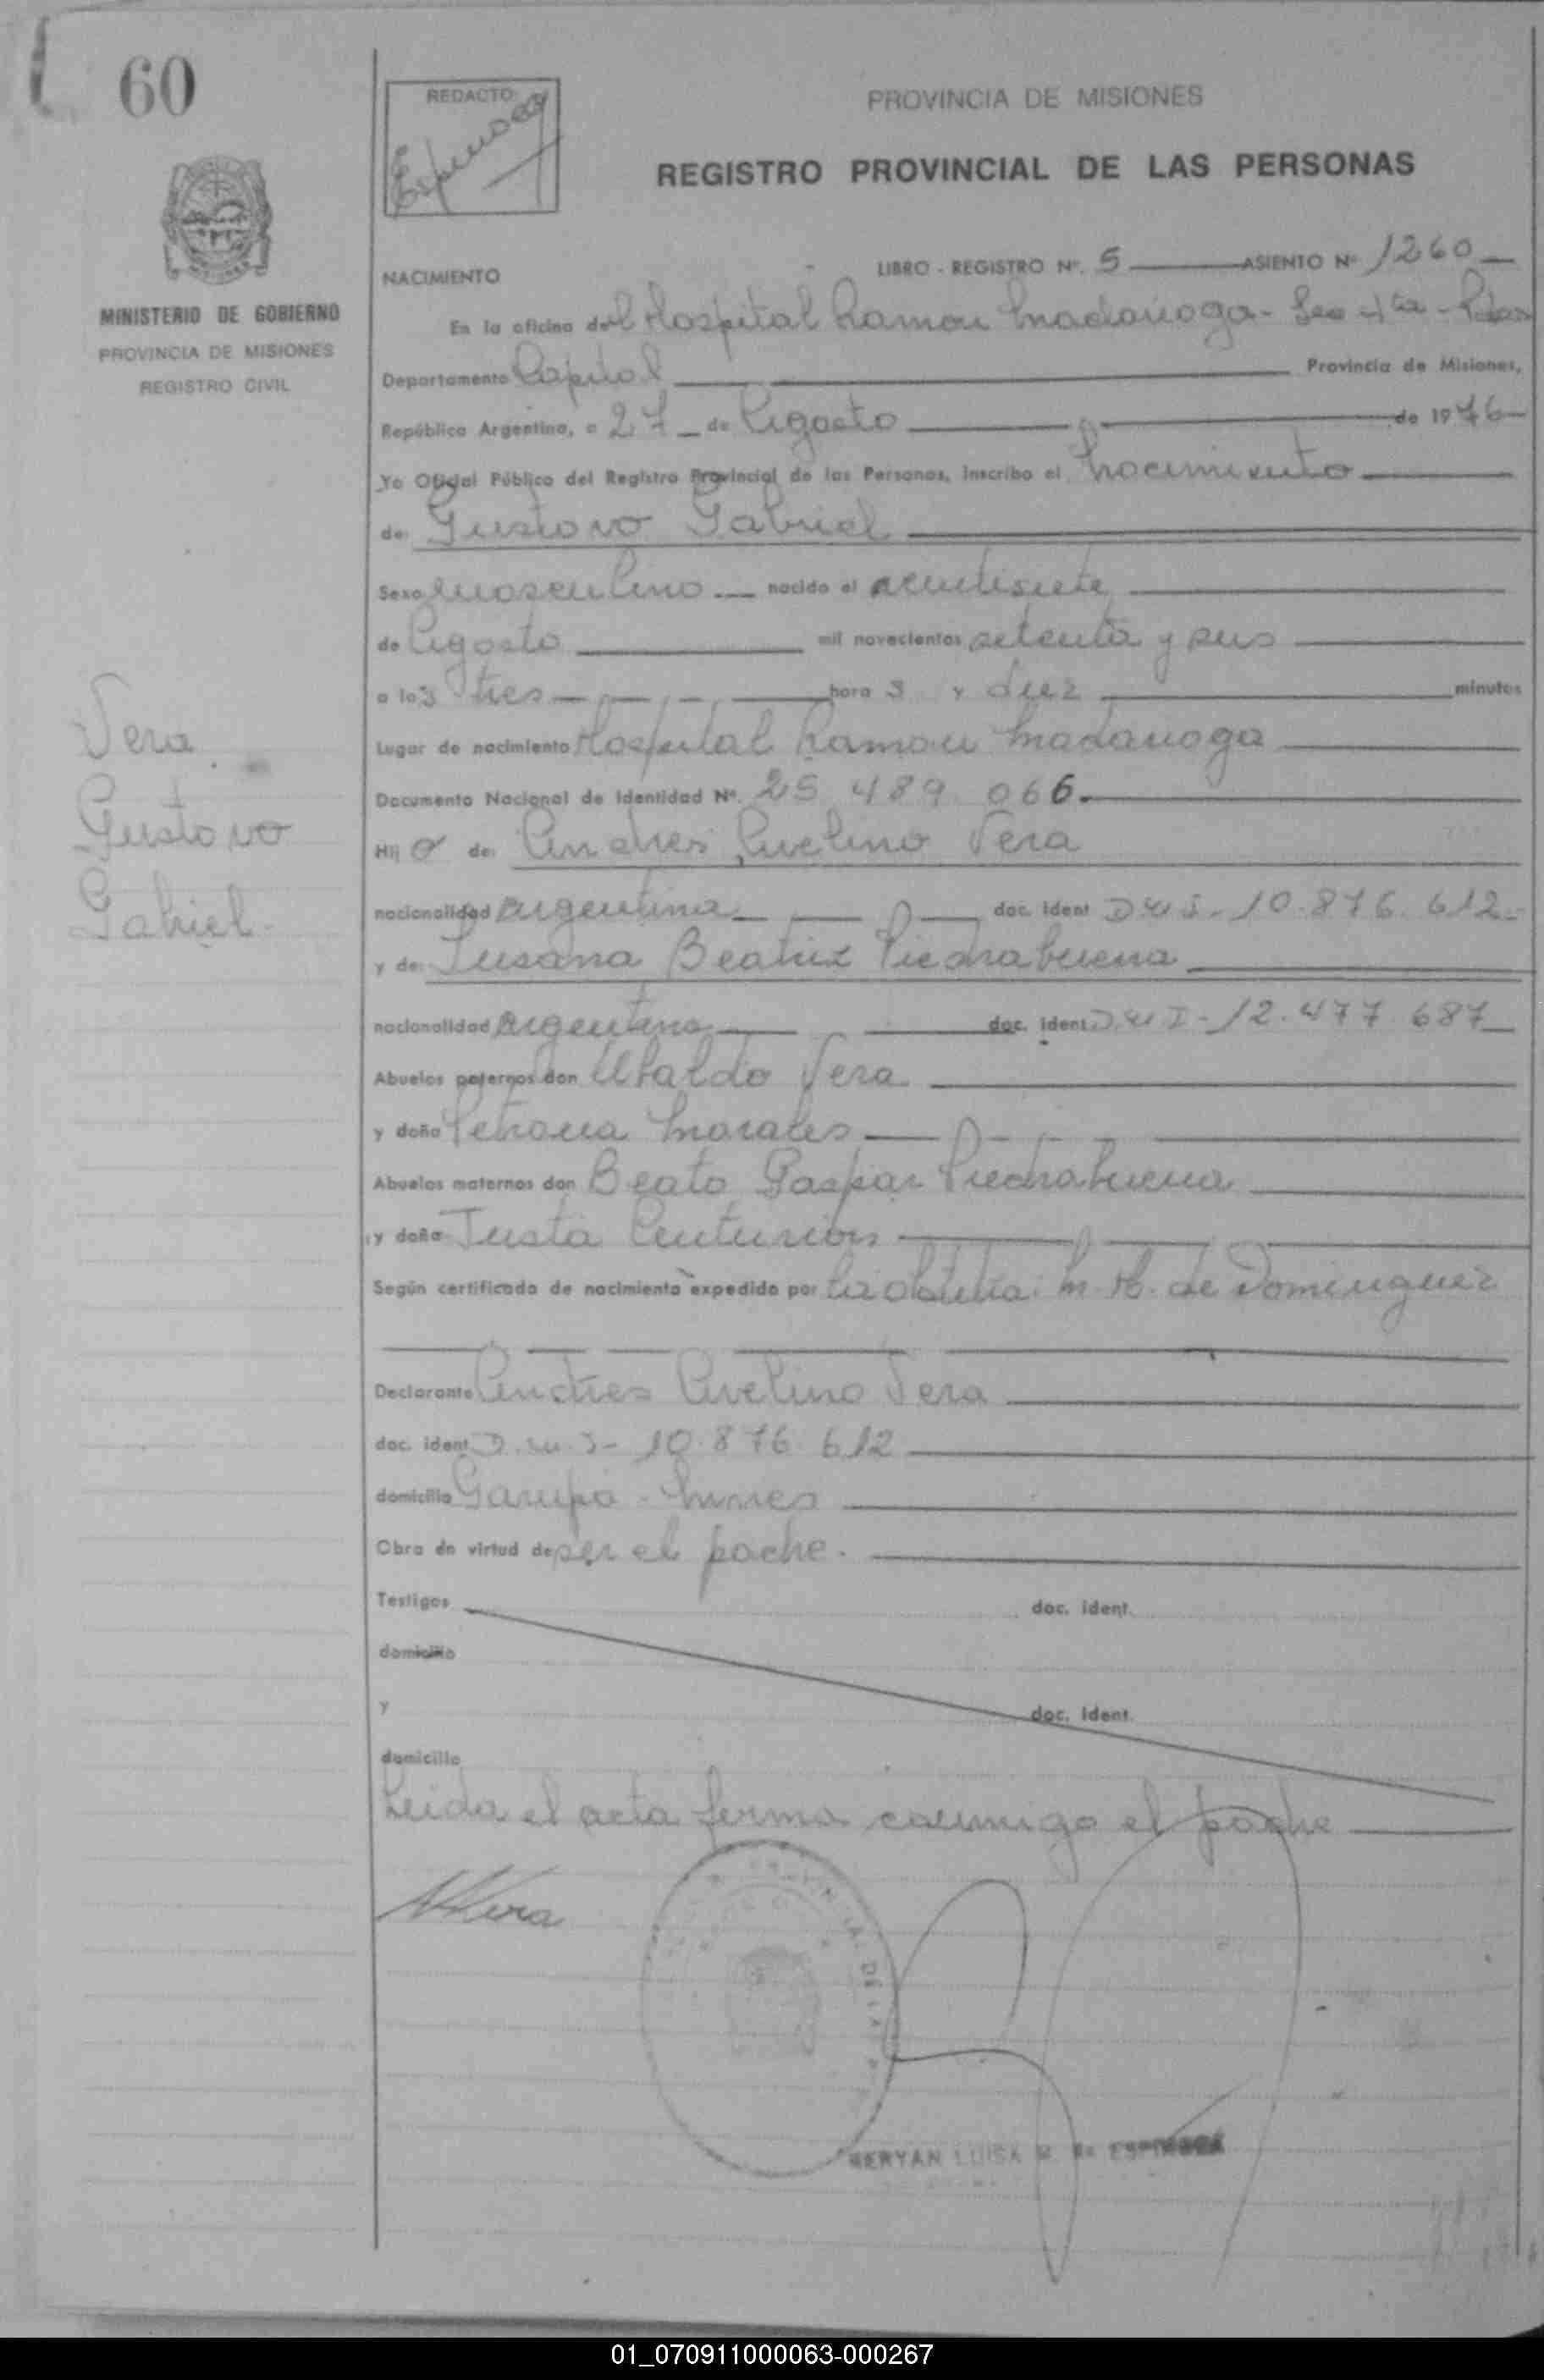 60
REDACTO
Espinosa
PROVINCIA DE MISIONES
REGISTRO PROVINCIAL DE LAS PERSONAS
MINISTERIO DE GOBIERNO
PROVINCIA DE MISIONES
REGISTRO CIVIL
NACIMIENTO
LIBRO - REGISTRO Nº. 5 ASIENTO Nº 1260
En la oficina del Hospital Ramon Madariaga - Sec 4ta - Pdas
Departamento Capital Provincia de Misiones,
República Argentina, a 27 de Agosto de 1976
Yo Oficial Público del Registro Provincial de las Personas, inscribo el Nacimiento
de: Gustavo Gabriel
Sexo Masculino nacido el veintisiete
de Agosto mil novecientos setenta y seis
a las tres hora s y diez minutos
Lugar de nacimiento Hospital Ramon Madariaga
Documento Nacional de Identidad Nº. 25 489 066
Hij o de: Andres Avelino Vera
nacionalidad Argentina doc. ident D.N.I - 10.876.612
y de: Susana Beatriz Piedrabuena
nacionalidad Argentina doc. ident D.N.I - 12.477.687
Abuelos paternos don Ubaldo Vera
y doña Petrona Morales
Abuelos maternos don Beato Gaspar Piedrabuena
y doña Justa Centurion
Según certificado de nacimiento expedido por la obstetra M. H. de Dominguez
Declarante Andres Avelino Vera
doc. ident D.N.I - 10.876.612
domicilio Garupa - Mnes
Obra en virtud de ser el padre.
Testigos doc. ident.
domicilio
y doc. ident.
domicilio
Leida el acta firma conmigo el padre
Vera
Gustavo
Gabriel
AVera
LUISA M. de ESPINOSA
01_070911000063-000267